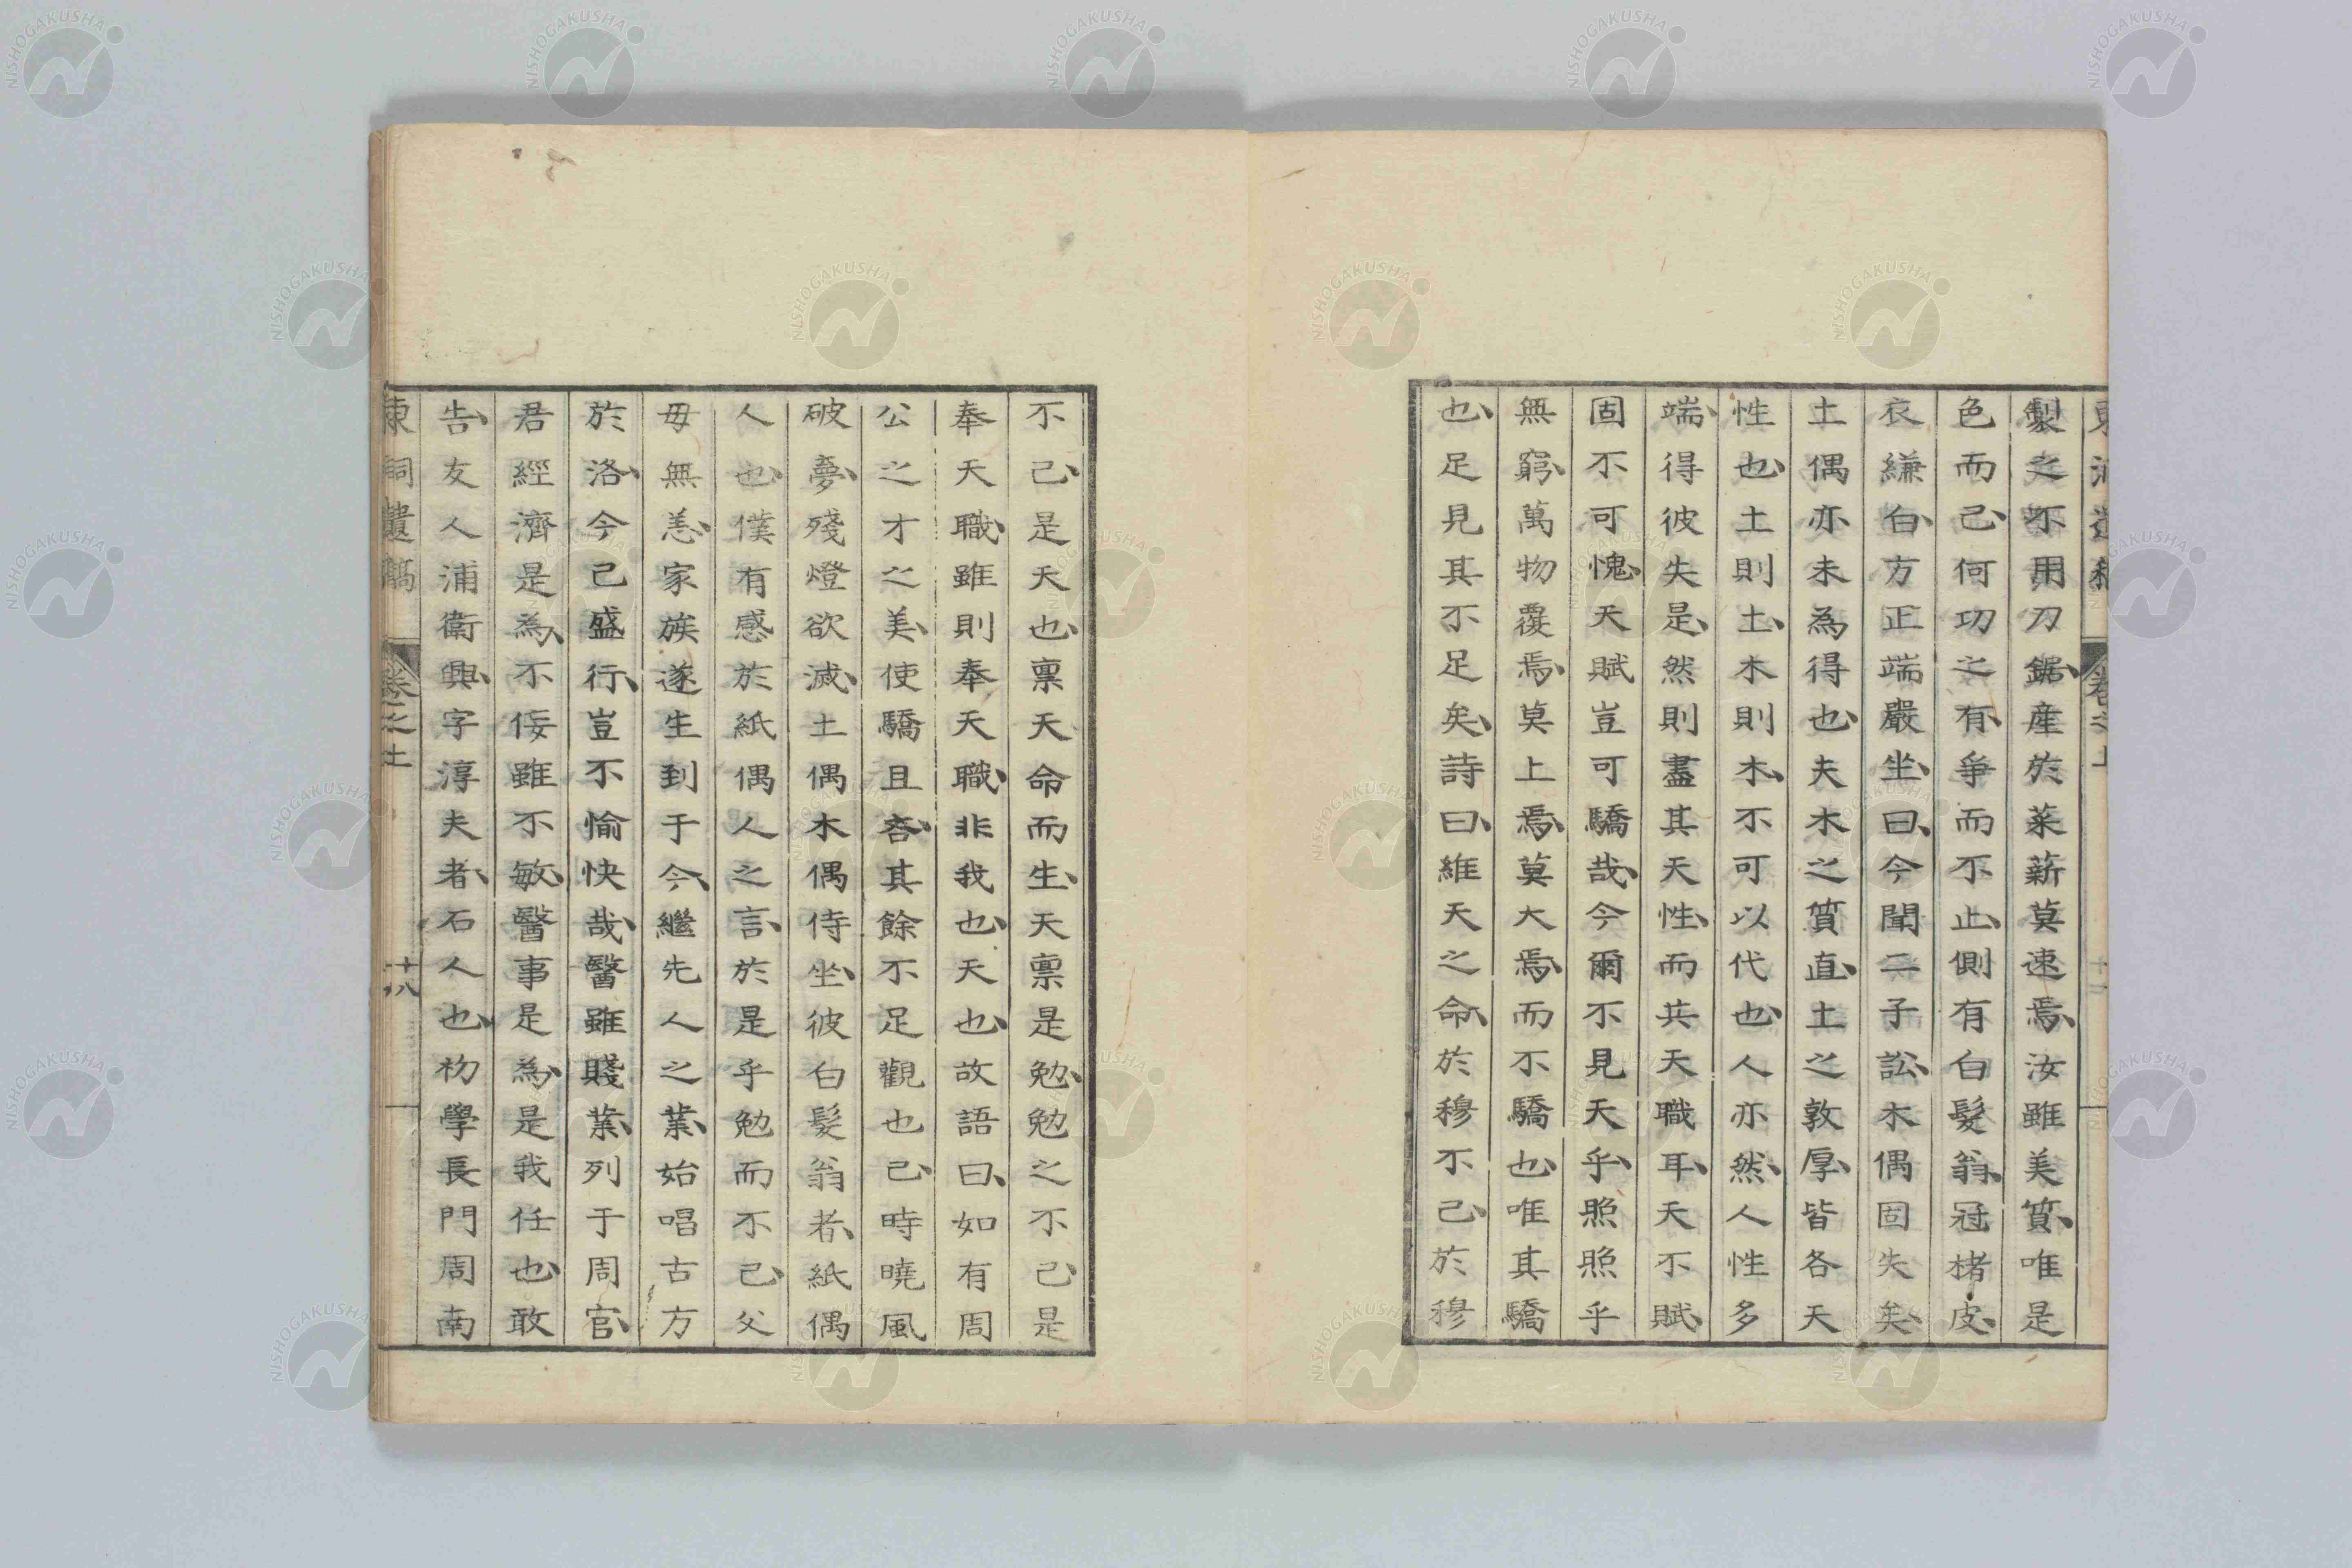 製之不用刀鋸、産於菜薪莫速焉、汝雖美質、唯是
色而己、何功之有、爭而不止、側有白髮翁、冠楮皮、
衣縑白、方正端嚴坐、曰、今聞二子訟、木偶固失矣、
土偶亦未為得也、夫木之質直、土之敦厚、皆各天
性也、土則土、木則木、不可以代也、人亦然、人性多
端、得彼失是、然則盡其天性、而共天職耳、天不賦、
固不可愧、天賦豈可驕哉、今爾不見天乎、照照乎
無窮、萬物覆焉、莫上焉、莫大焉、而不驕也、唯其驕
也、足見其不足矣、詩曰、維天之命、於穆不己、於穆
不己、是天也、稟天命而生、天稟是勉、勉之不己、是
奉天職、雖則奉天職、非我也、天也、故語曰、如有周
公之才之美、使驕且吝、其餘不足觀也己、時曉風
破夢、殘燈欲滅、土偶木偶侍坐、彼白髮翁者、紙偶
人也、僕有感於紙偶人之言、於是乎勉而不己、父
母無恙、家族遂生到于今、繼先人之業、始唱古方
於洛、今己盛行、豈不愉快哉、醫雖賤業、列于周官、
君經濟是為、不佞雖不敏、醫事是為、是我任也、敢
告、友人浦衛興、字淳夫者、石人也、初學長門周南
東洞遺稿 卷之上 十八